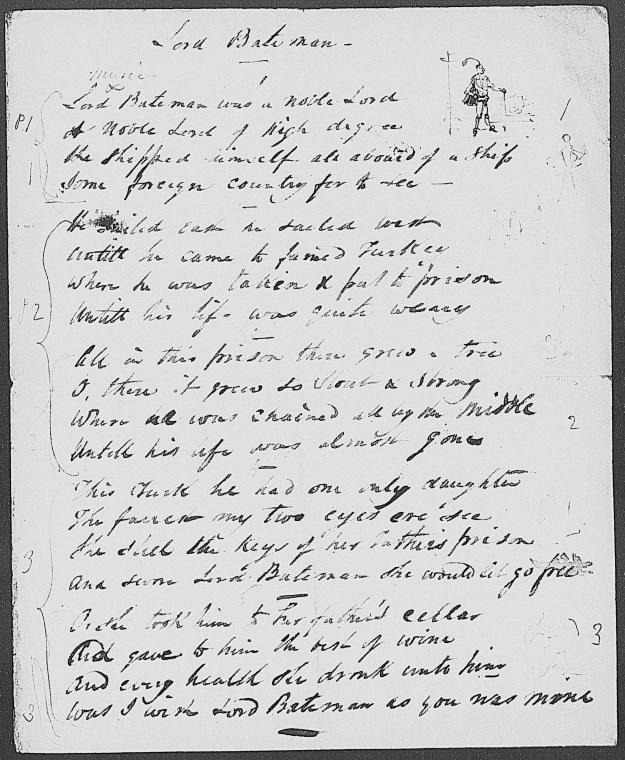 Lord Bateman
music
P1
Lord Bateman was a noble Lord
A Noble Lord of high degree
He Shipped himself all aboard of a Ship
Some foreign country for to see
1
1
He sailed east he sailed west
Untill he came to famed Turkey
Where he was taken & put to prison
Untill his life was quite weary
P2
All in this prison there grew a tree
O, there it grew so Stout & Strong
Where he was chained all by the middle
Untill his life was almost gone
2
This Turk he had one only daughter
The fairest my two eyes ere see
She steel the Keys of her Fathers prison
And swore Lord Bateman she would let go free
3
O she took him to her father's cellar
And gave to him the best of wine
And every health she dronk unto him
Was I wish Lord Bateman as you was mine
3
3